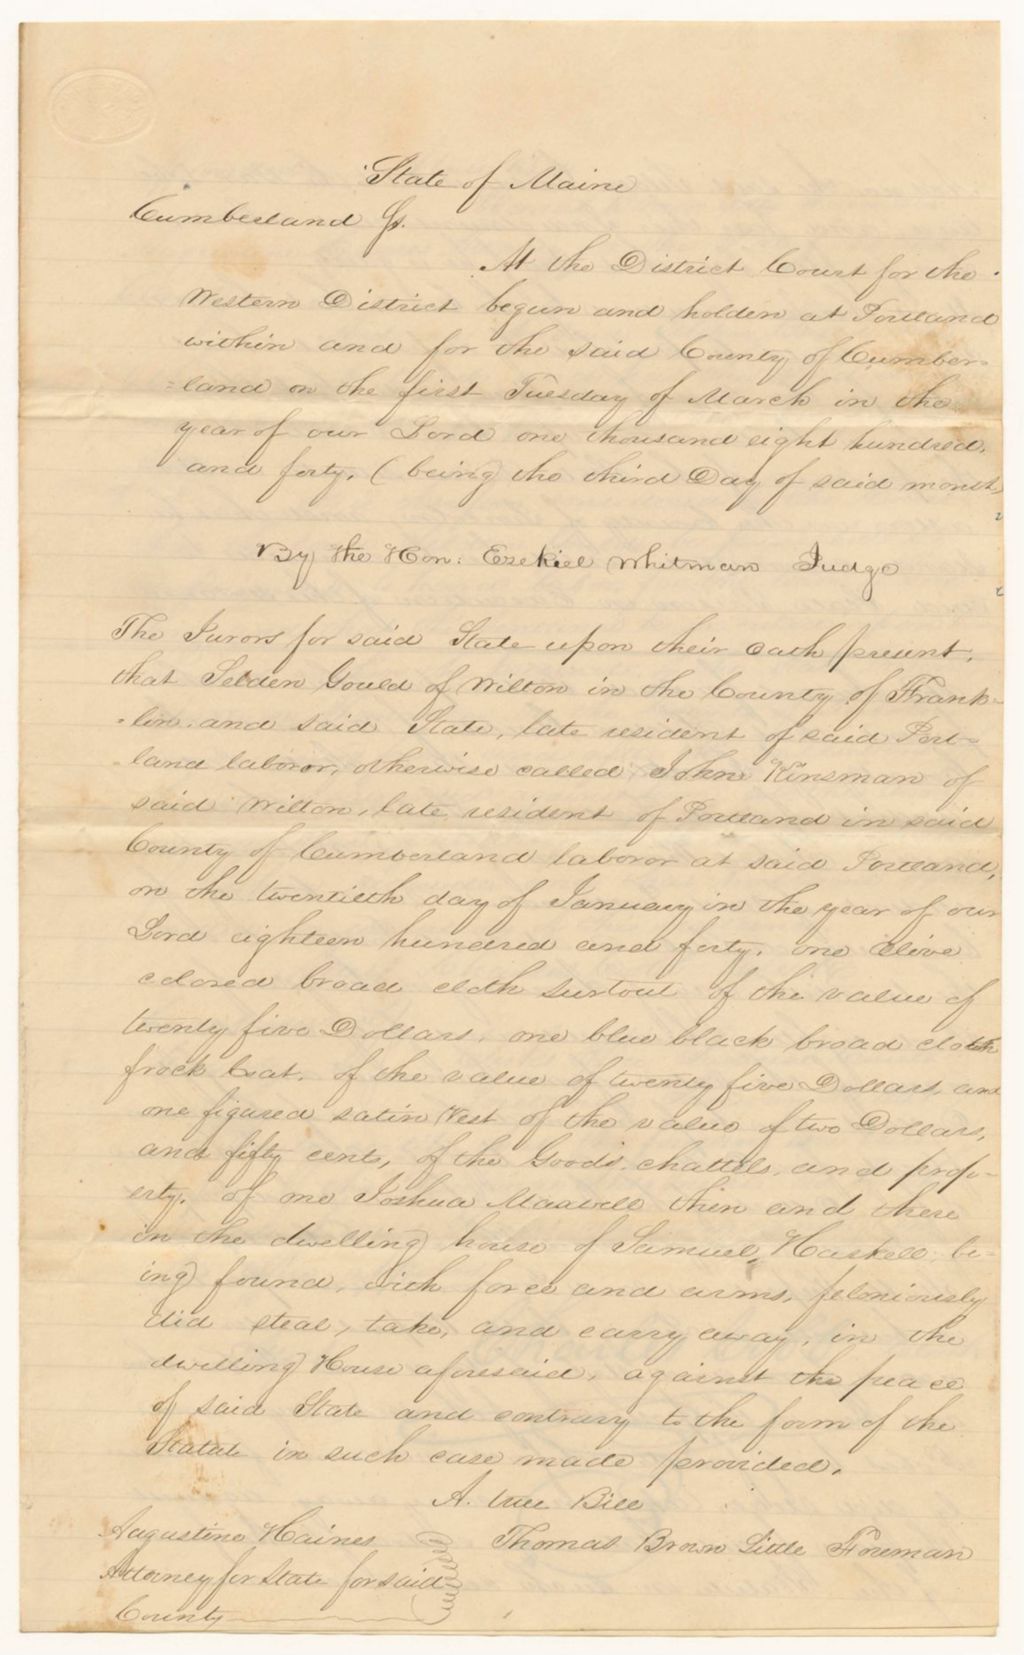 State of Maine
Cumberland Ss.
At the District Court for the
Western District begun and holden at Portland
within and for the said County of Cumber-
=land on the first Tuesday of March in the
year of our Lord one thousand eight hundred.
and forty. (being the third Day of said month)
By the Hon: Ezekiel Whitman Judge
The Jurors for said State upon their oath present,
that Selden Gould of Wilton in the County of Frank=
=lin. and said State, late resident of said Port-
land laboror, otherwise called John Kinsman of
said Wilton, late resident of Portland in said
County of Cumberland laboror at said Portland,
on the twentieth day of January in the year of our
Lord eighteen hundred and forty. one olive
colored broad cloth surtout of the value of
twenty five Dollars. one blue black broad cloth
frock Coat. of the value of twenty five Dollars, and
one figured satin Vest of the value of two Dollars,
and fifty cents, of the Goods. chattels. and prop-
erty. of one Joshua Maxwell then and there
in the dwelling house of Samuel Haskell be-
ing found, with force and arms, feloniously
did steal, take, and carry away, in the
dwelling House aforesaid, against the peace
of said State and contrary to the form of the
Statute in such case made provided.
A. true Bill
Augustine Haines
Thomas Brown Little Foreman
Attorney for State for said
County